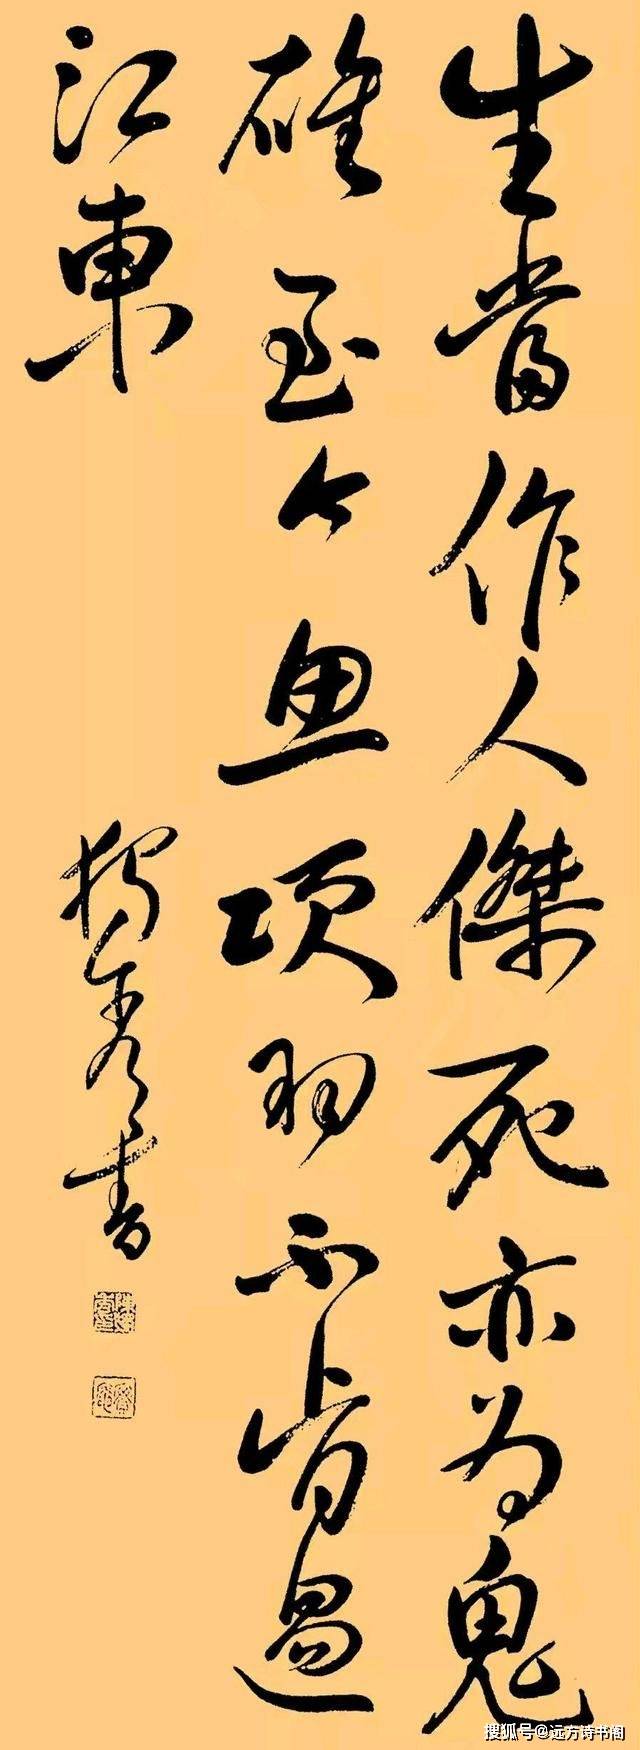 生當作人傑死亦為鬼
雄至今思項羽不肯過
江東
獨秀書
搜狐号@远方诗书阁